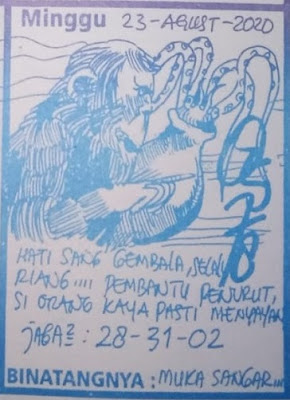 Minggu 23-AGUST-2020
HATI SANG GEMBALA, SELALU
RIANG.... PEMBANTU PENURUT,
SI ORANG KAYA PASTI MENYAYAN
JAGA2 : 28-31-02
BINATANGNYA : MUKA SANGAR...